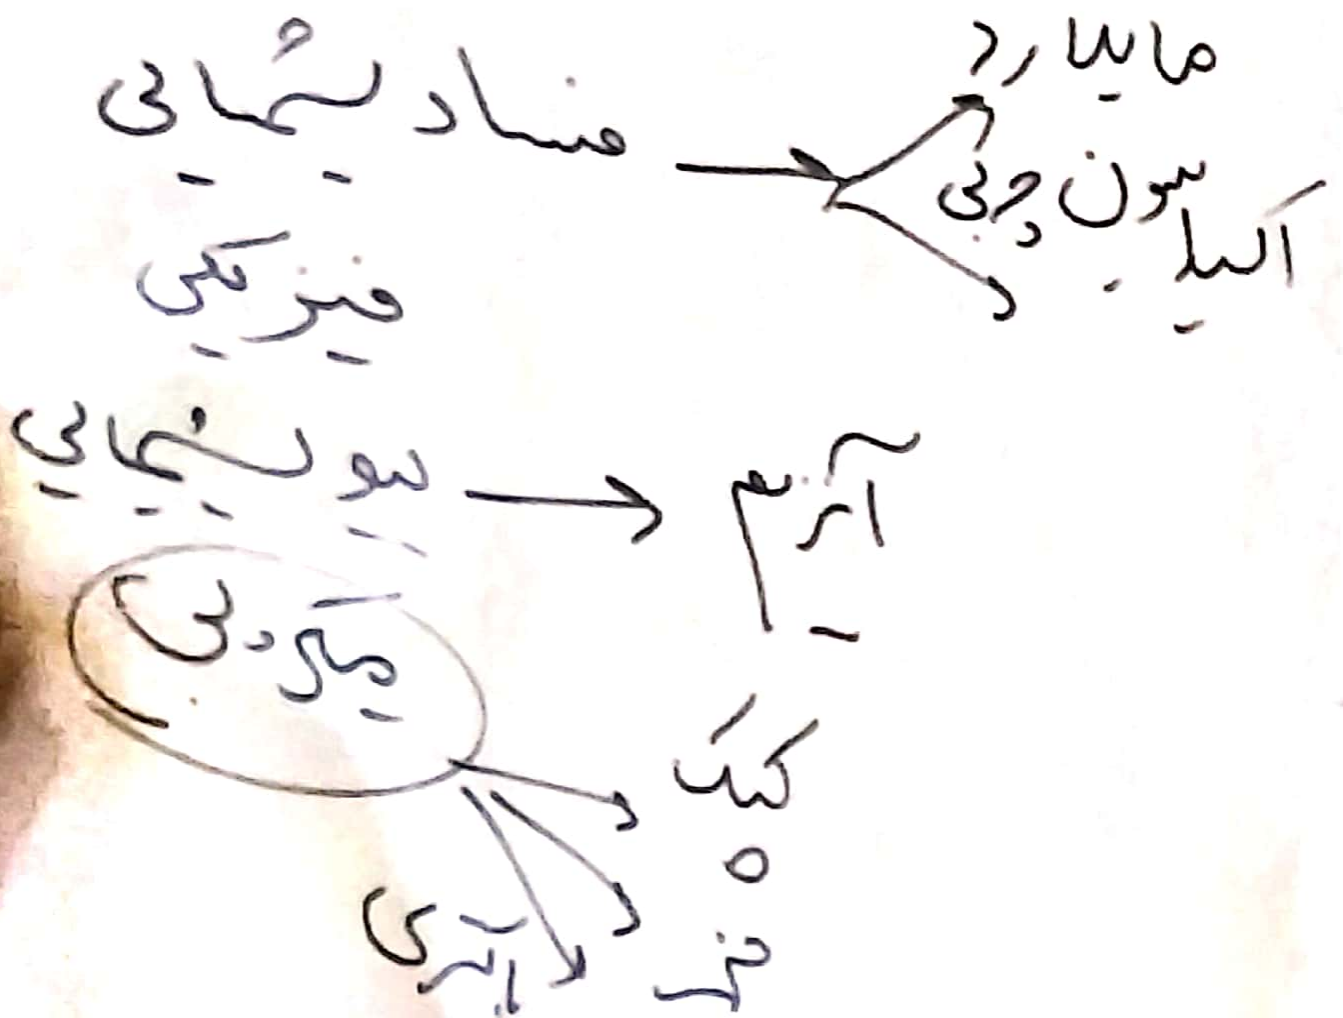 فساد شیمیایی
مایلارد
اکسیداسیون چربی
فیزیکی
بیوشیمیایی
آنزیم
میکروبی
کپک
مخمر
باکتری